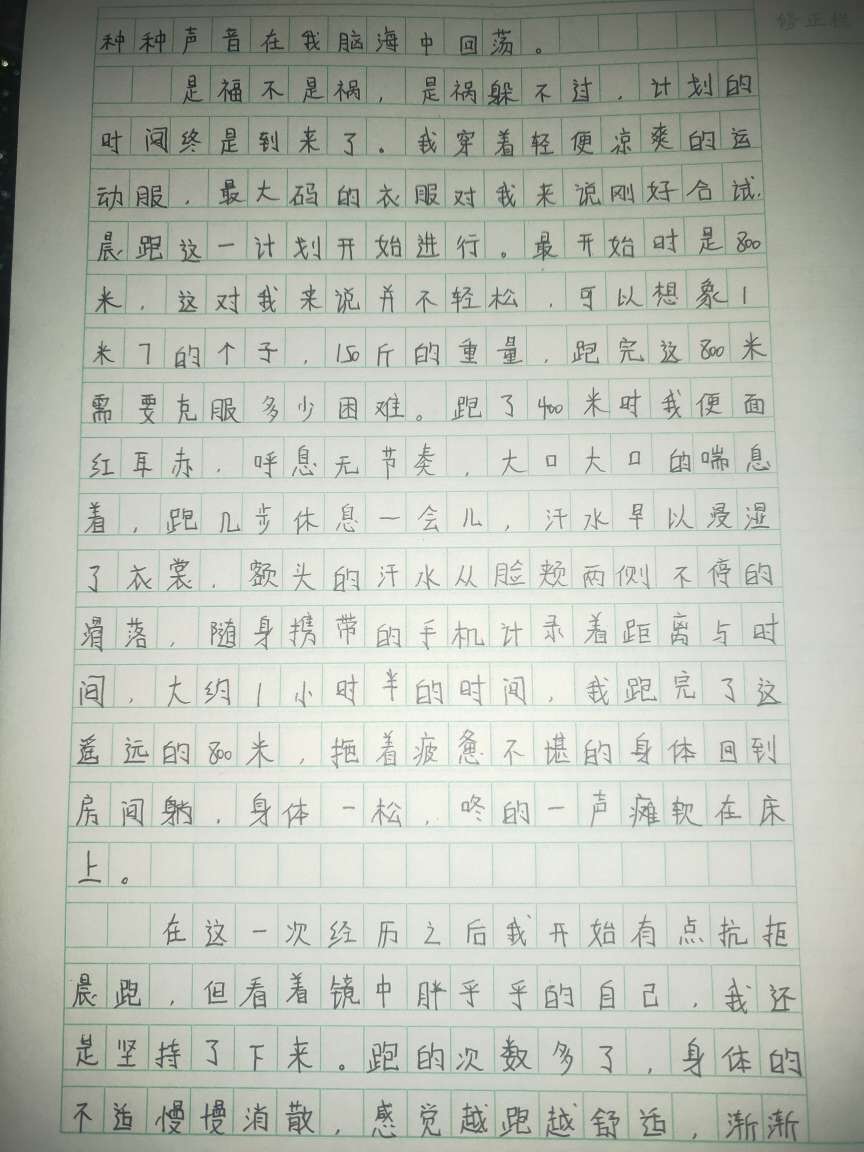 修正栏
种种声音在我脑海中回荡。
是福不是祸，是祸躲不过，计划的
时间终是到来了。我穿着轻便凉爽的运
动服，最大码的衣服对我来说刚好合试.
晨跑这一计划开始进行。最开始时是800
米，这对我来说并不轻松，可以想象1
米7的个子，150斤的重量，跑完这800米
需要克服多少困难。跑了400米时我便面
红耳赤，呼息无节奏，大口大口的喘息
着，跑几步休息一会儿，汗水早以浸湿
了衣裳，额头的汗水从脸颊两侧不停的
滑落，随身携带的手机计录着距离与时
间，大约1小时半的时间，我跑完了这
遥远的800米，拖着疲惫不堪的身体回到
房间躺，身体一松，咚的一声瘫软在床
上。
在这一次经历之后我开始有点抗拒
晨跑，但看着镜中胖乎乎的自己，我还
是坚持了下来。跑的次数多了，身体的
不适慢慢消散，感觉越跑越舒适，渐渐